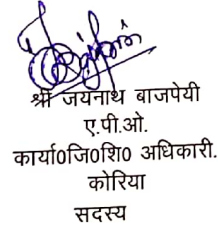 श्री जयनाथ बाजपेयी
ए.पी.ओ.
कार्या0जि0शि0 अधिकारी.
कोरिया
सदस्य